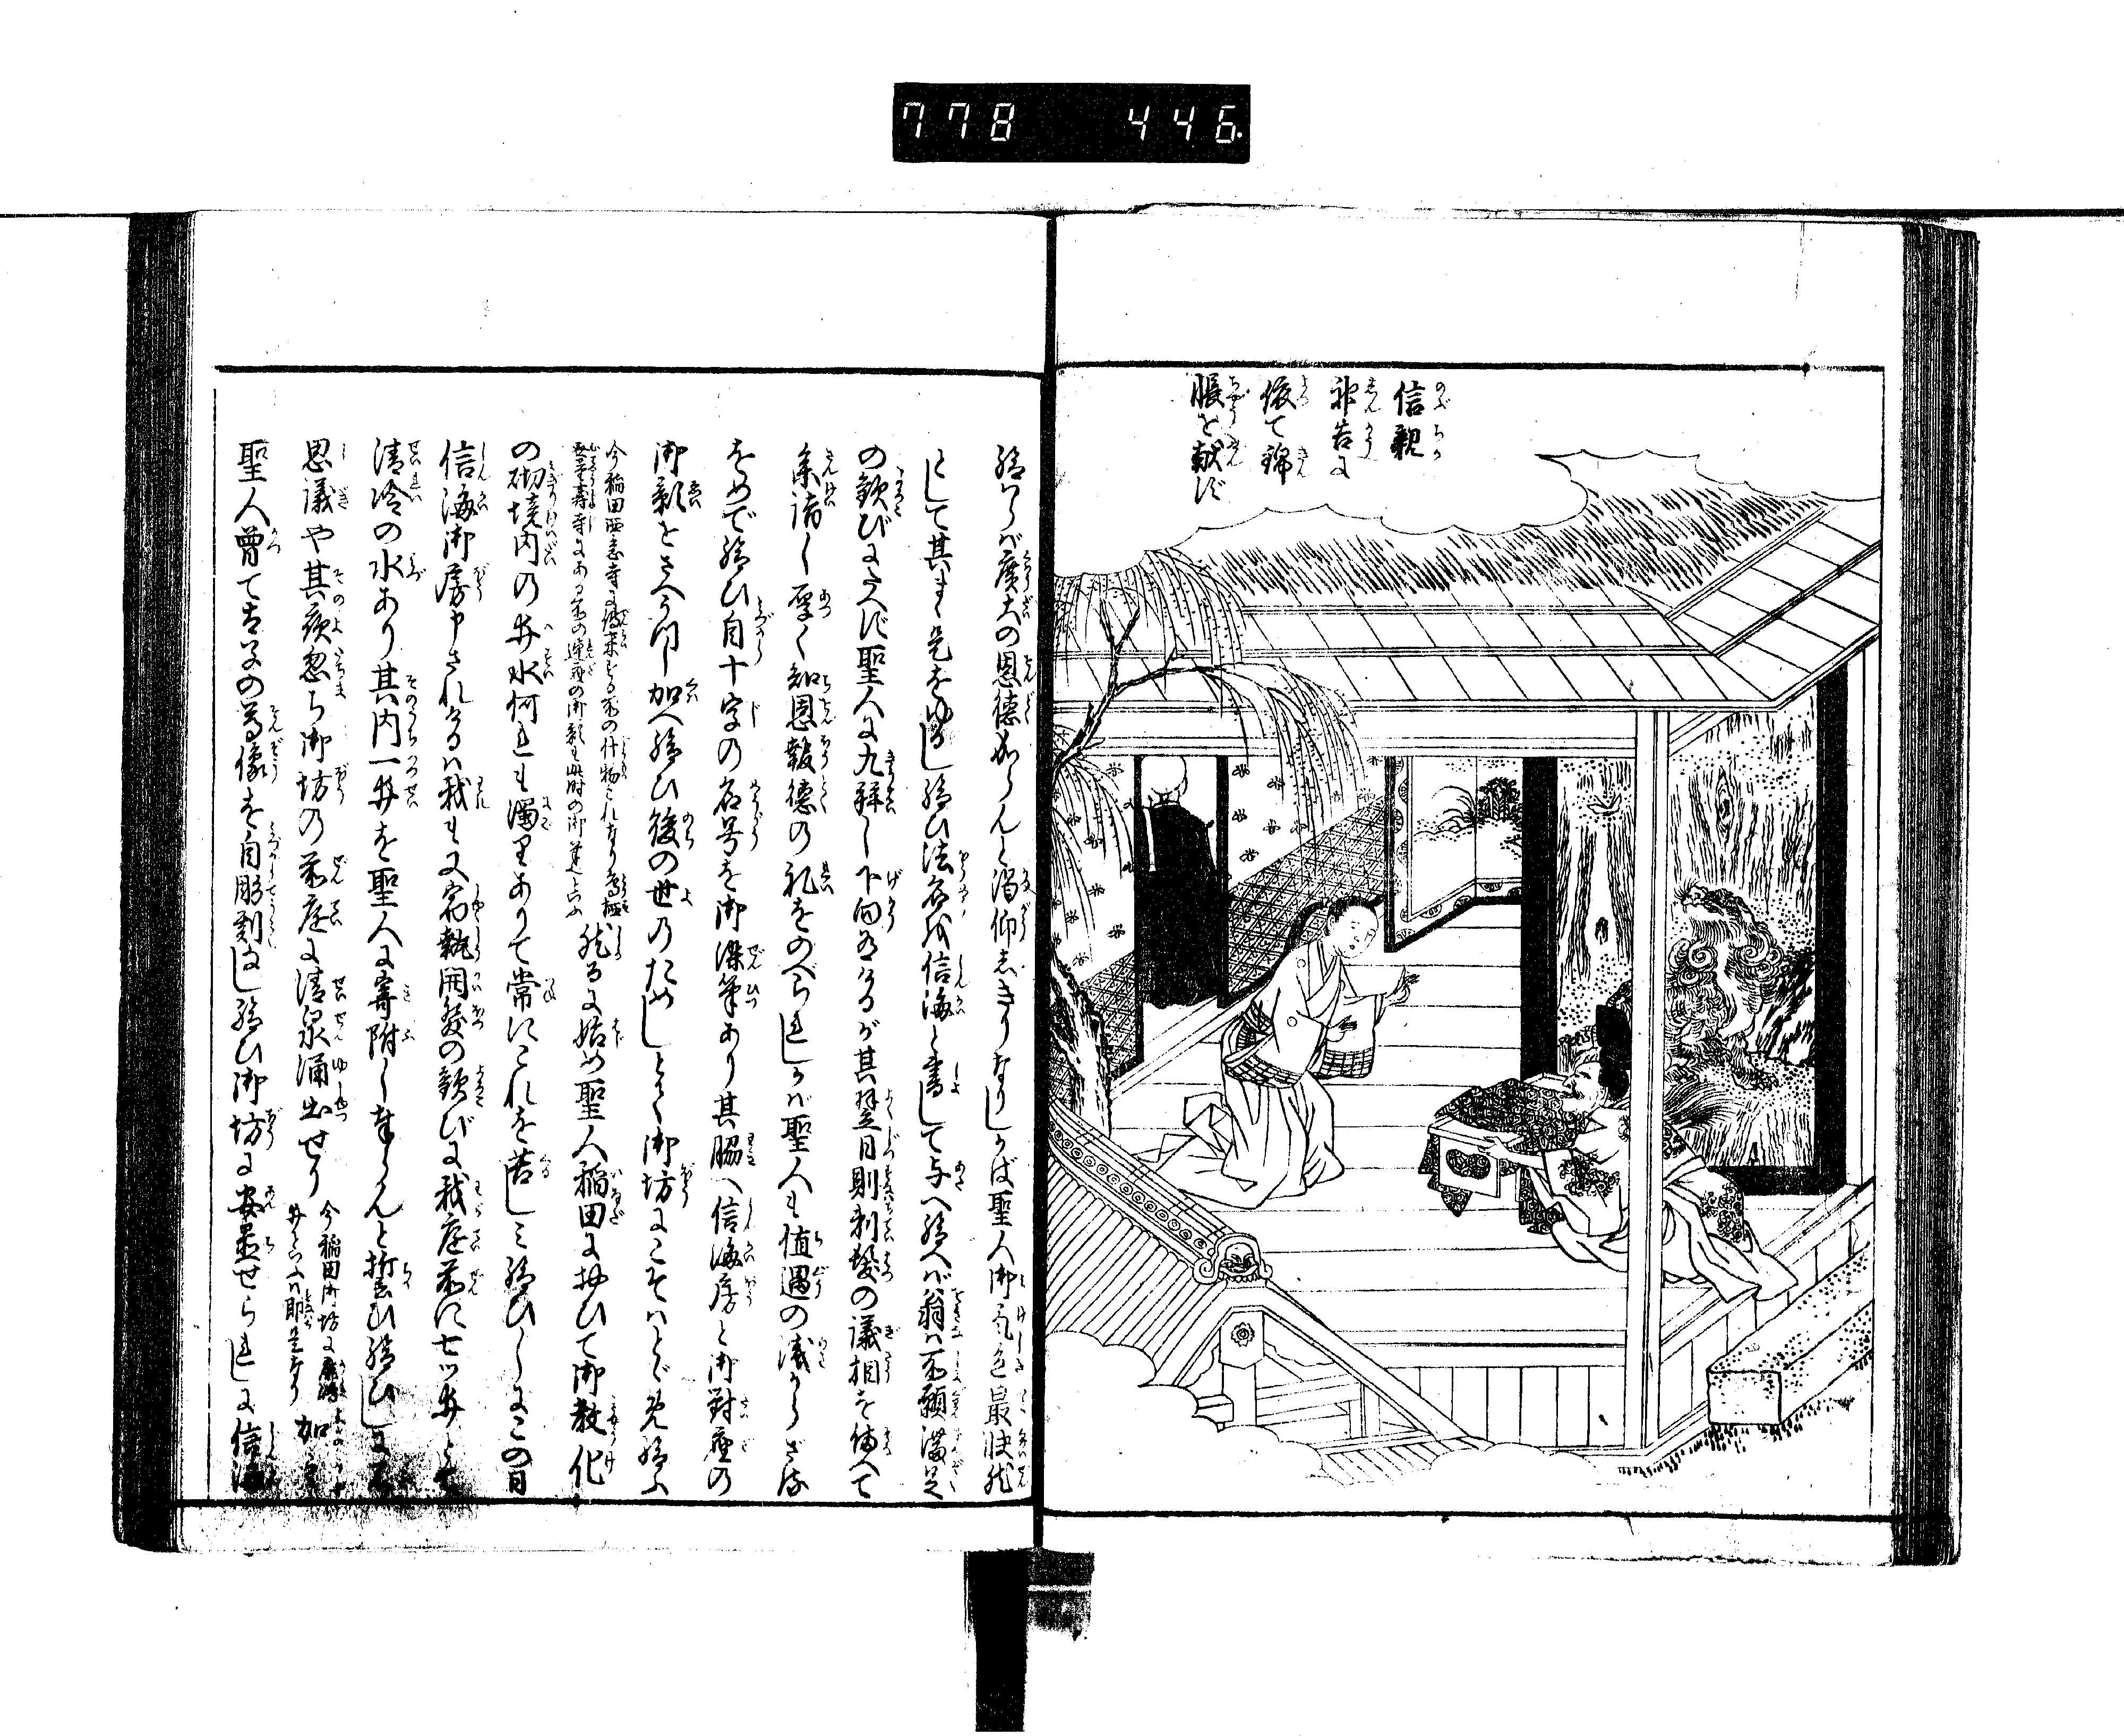 778 446
信親
神告に
依て錦
帳を献ず
給はらば廣大の恩徳ならんと渇仰しきりなりしかば聖人御気色最快然
として其まゝ是をゆるし給ひ法名を信海と書して与へ給へば翁は願満足
の歓びにたへず聖人に九拝し下向しけるが其翌日則剃髪の議相を備へて
参詣し厚く知恩報徳の礼をのべられしかば聖人も値遇の浅からざる
をめで給ひ自十字の名号を御染筆あり其脇へ信海房と御對座の
御影をさへ加へ給ひ後の世のためしとて御坊にこそはとゞめ給ふ
今稲田西念寺に傳来する所の什物これなり
寿寺にある所の御影も此時の御筆と云ふ
然るに始め聖人稲田に於ひて御教化
の砌境内の井水何れも濁りありて常にこれを苦しみ給ひしにこの日
信海御房申されけるは我も又宿執開発の歓びに我庭前に七ツ井とて
清冷の水あり其内一井を聖人に寄附し奉らんと誓ひ給ひしに
思議や其夜忽ち御坊の前庭に清泉涌出せり
今稲田御坊に
井といふは即是なり
聖人曽て太子の尊像を自彫刻し給ひ御坊に安置せられしに信海